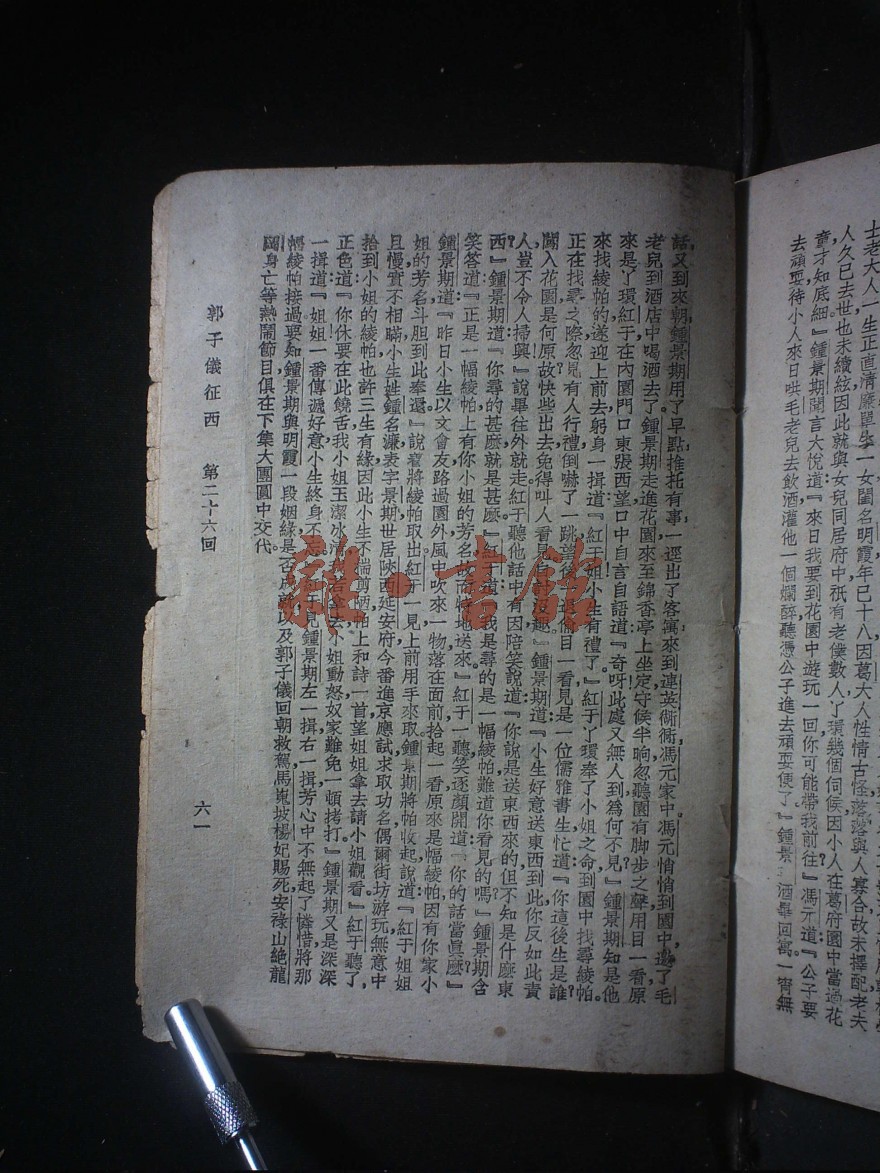 士老大人一生正直清廉單生一女閨名明霞年已十八因葛大人性情古怪落落與人寡合故未擇配老夫
人久已去世也未續絃因此就與女兒同居府中祇有老僕數人丫環幾個伺候因小人在葛府園中當過花
童才知底細』鍾景期聞言大悅道『來日我要到花園中遊玩一回你可能帶我前往』馮元道『公子要
去頑耍待小人來日哄毛老兒去飲酒灌他一個爛醉聽憑公子進去頑耍便了』鍾景 酒畢回寓一宵無
話又到來朝鍾景期用了早點推托有事一逕出了客寓來到連英衚衕馮元家中馮元悄悄到園中邀了毛
老兒到酒店中喝酒去了鍾景期走進花園來至錦香亭上坐定守候半晌忽聽園有脚步之聲用目一看原
來是丫環紅于在內園門口東張西望口中自言自語道『奇呀此處又無人到爲何不見』鍾景期知是他
來找綾帕的遂迎上前去躬身一揖道『紅于姐小生有禮了』紅于丫環奉了小姐之命到園中找尋綾帕
正在找尋之際忽見有人行禮倒嚇了一跳 後 目一看見是一位儒雅書生忙道『你這後生是誰
闖入花園是何原故快些出去免得叫人看見 』鍾景期道『小生好意送東西到此你反如此責
人豈不令人掃興』說畢往外就走紅于聽他話中有因陪笑說道『你說是送東西來的但不知是什麽東
西』鍾景期道『你尋的甚麽就是甚麽』紅于道『我是尋的是一幅綾帕難道你看見的嗎』鍾景期含
笑答道『正是一幅綾帕上有你小姐的芳名 特地送來』紅于一聽笑逐顏開道『你的話當眞麽』
鍾景期道『昨日小生以文會友路過園外風中吹來一物落在面前拾起一看原來是幅綾帕因有你家小
姐的芳名斗胆到此奉還』說着將綾帕取出紅于一見上前用手來取鍾景期將帕收起說道『紅于姐姐
且慢實不相瞞小生姓鍾名濂表字景期世居陝西延安府今番進京應試求取功名偶爾街坊游玩無意中
拾到小姐的綾帕也許三生有緣因此小生不揣 陋帕上和詩一首望姐姐拿去請小姐觀看』紅于聽了
正色道『你休要在此饒舌我小姐玉潔冰 若拿去小姐動怒奴家難免一頓拷打』鍾景期又是深深
一揖道『姐姐一番傳遞好意小生終身不忘』紅于見鍾景期左一揖右一揖芳心中不無起了憐惜將那
幅綾帕接過要知鍾景期與明霞一段姻緣是否成就以及郭子儀回朝救駕馬嵬坡楊妃賜死安祿山絶龍
岡身亡等熱鬧節目俱在下集大團圓中交代
郭子儀征西 第二十六回 六一
雜·書館